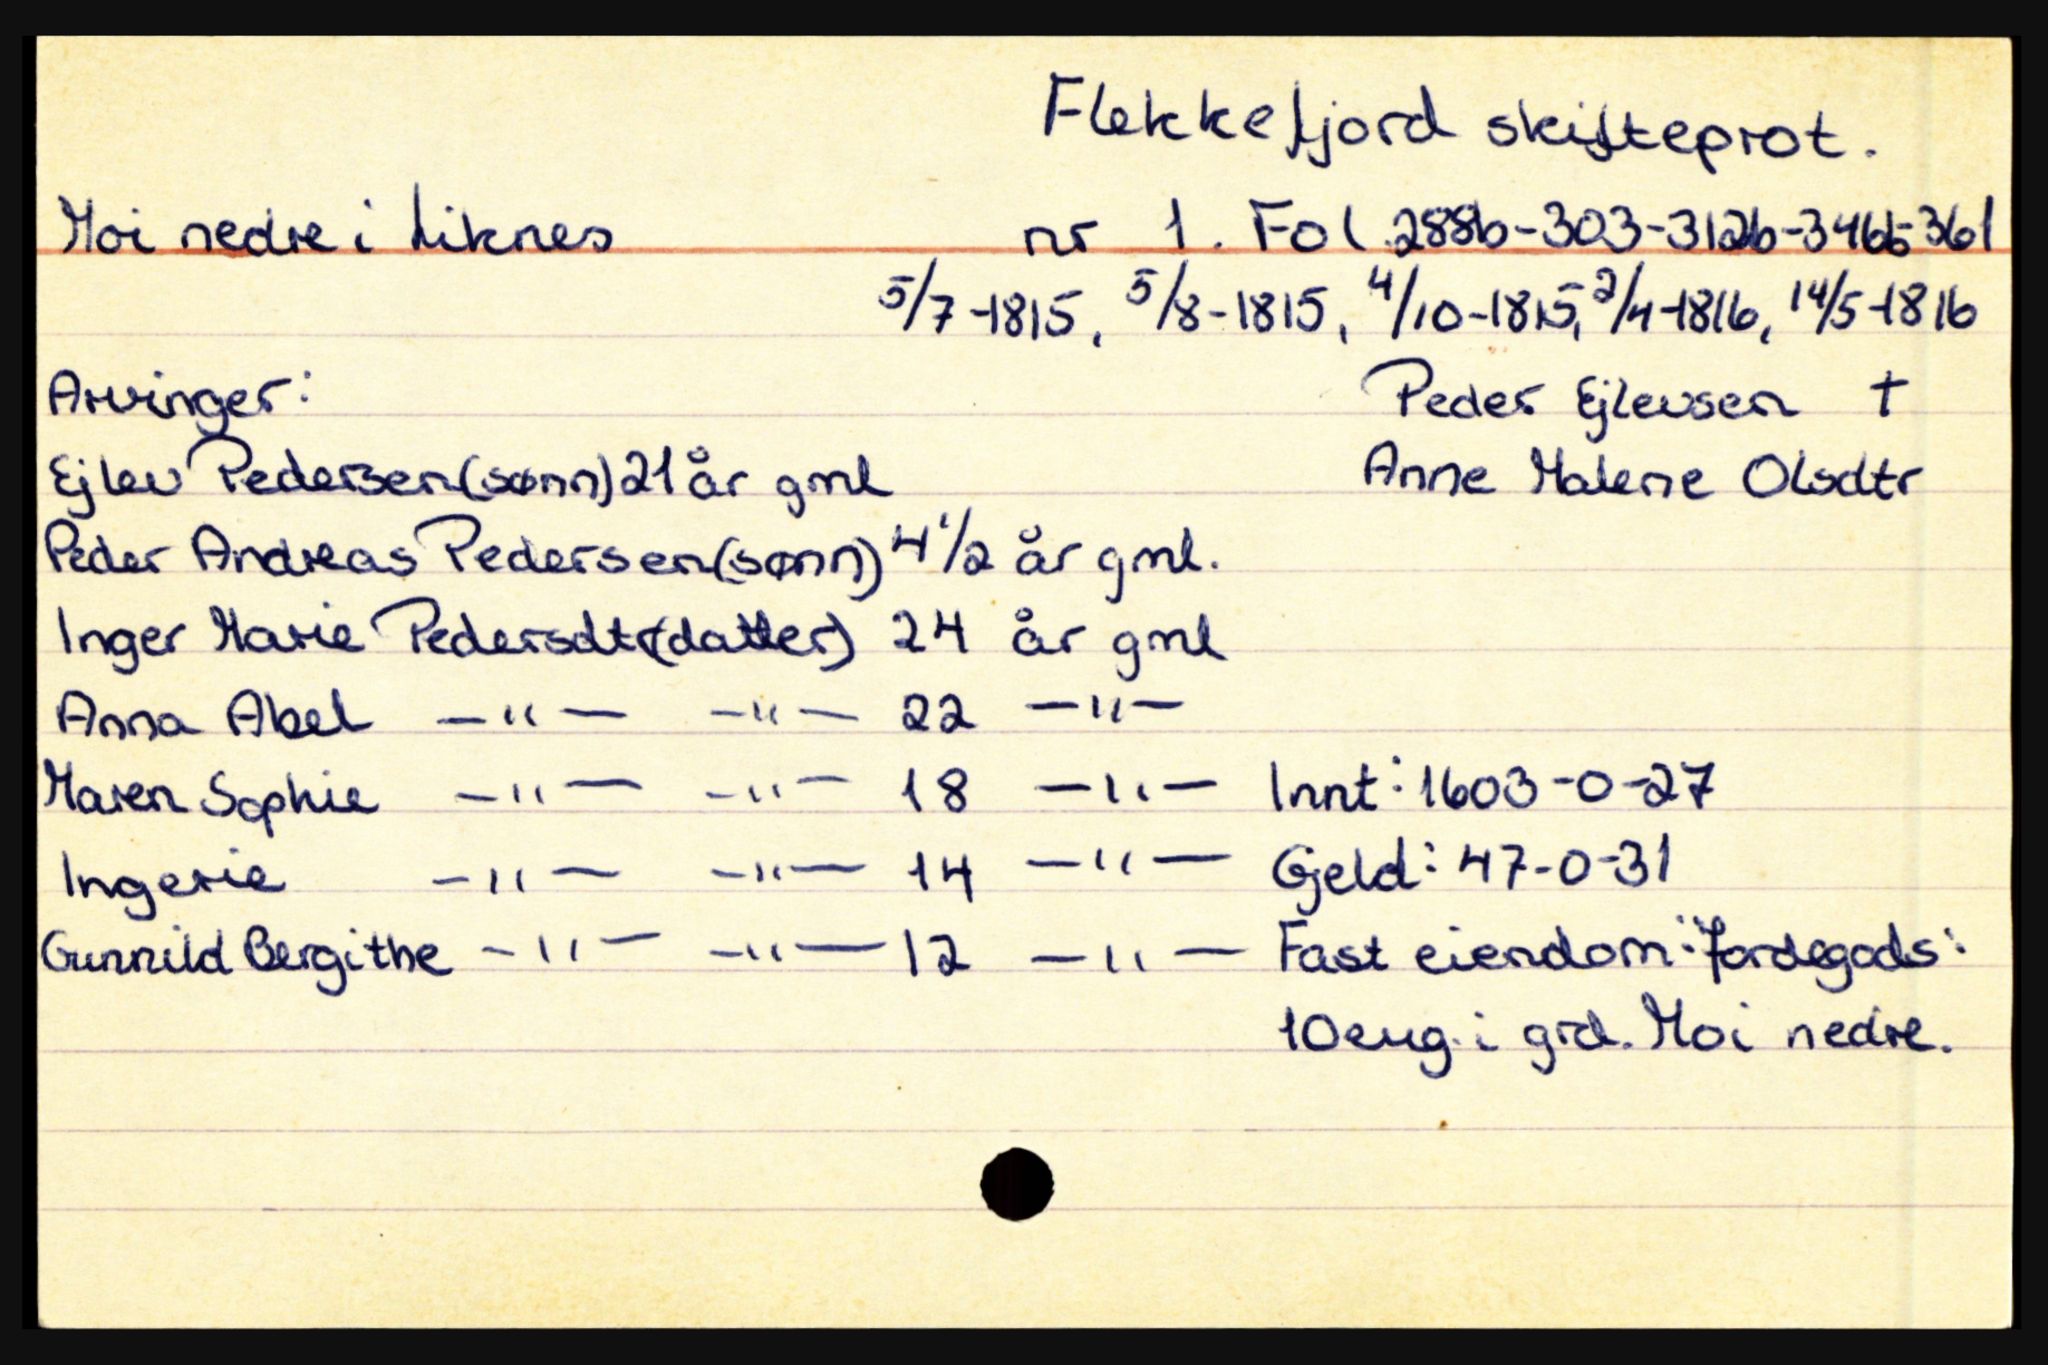 Flekkefjord skifteprot.
Moi nedre i Liknes nr 1. Fol. 288b-303-312b-346b-361
5/7-1815, 5/8-1815, 4/10-1815, 2/4-1816, 14/5-1816
Arvinger: Peder Ejlevsen †
Ejlev Pedersen (sønn) 21 år gml Anne Malene Olsdtr
Peder Andreas Pedersen (sønn) 4 1/2 år gml.
Inger Marie Pedersdtr (datter) 24 år gml
Anna Abel —"— —"— 22 —"—
Maren Sophie —"— —"— 18 —"— Innt: 1603-0-27
Ingerie —"— —"— 14 —"— Gjeld: 47-0-31
Gunnild Bergithe —"— —"— 12 —"— Fast eiendom: Jordegods:
10 eng. i grd. Moi nedre.